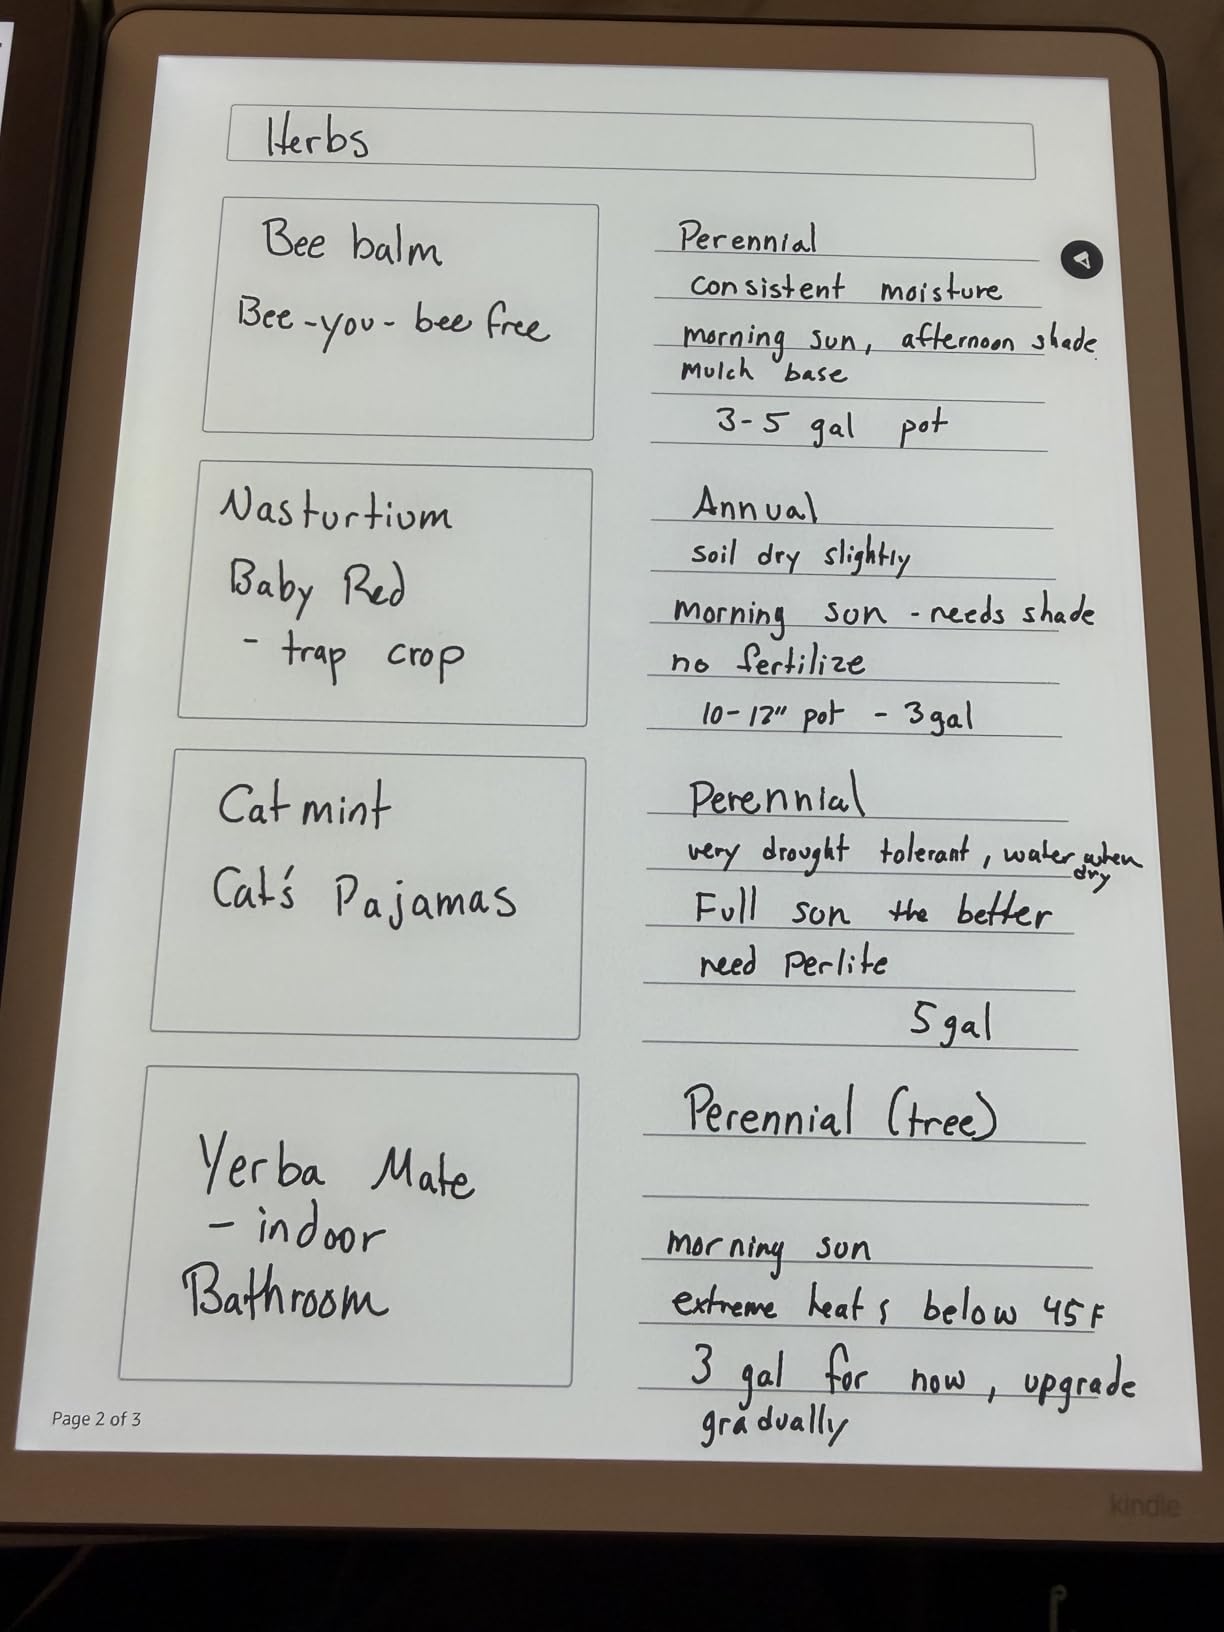 Herbs
Bee balm
Bee-you-bee free
Perennial
consistent moisture
morning sun, afternoon shade
mulch base
3-5 gal pot
Nasturtium
Baby Red
- trap crop
Annual
soil dry slightly
morning sun - needs shade
no fertilize
10-12" pot - 3 gal
Catmint
Cat's Pajamas
Perennial
very drought tolerant, water when
dry
Full sun the better
need Perlite
5 gal
Yerba Mate
- indoor
Bathroom
Perennial (tree)
morning sun
extreme heat s below 45 F
3 gal for now, upgrade
gradually
Page 2 of 3
kindle